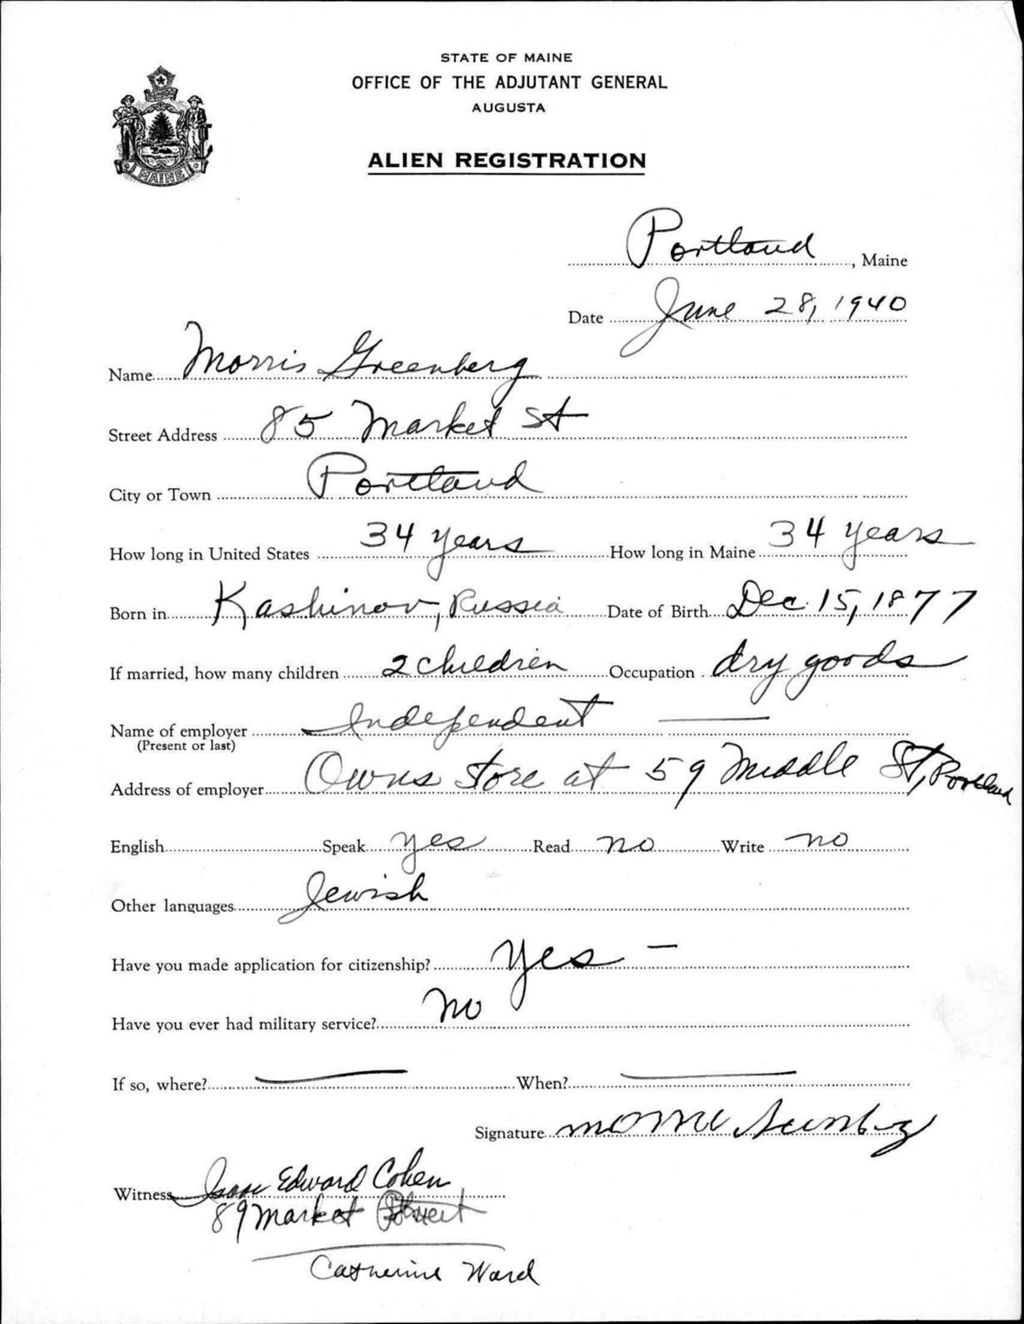 STATE OF MAINE
OFFICE OF THE ADJUTANT GENERAL
AUGUSTA
ALIEN REGISTRATION
MAINE
Portland, Maine
Date June 28, 1940
Name Morris Greenberg
Street Address 85 Market St
City or Town Portland
How long in United States 34 years How long in Maine 34 years
Born in Kashinov, Russia Date of Birth Dec 15, 1877
If married, how many children 2 children Occupation dry goods
Name of employer Independent —
(Present or last)
Address of employer Owns Store at 59 Middle St, Portland
English Speak yes Read no Write no
Other languages Jewish
Have you made application for citizenship? Yes –
Have you ever had military service? no
If so, where? — When? —
Signature
Witness Edward Cohen
89 Market Street
Catherine Ward